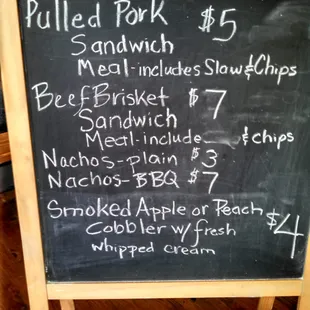 Pulled Pork $5
Sandwich
Meal-includes Slaw & Chips
Beef Brisket $7
Sandwich
Meal-include & chips
Nachos-plain $3
Nachos-BBQ $7
Smoked Apple or Peach $4
Cobbler w/ fresh
whipped cream